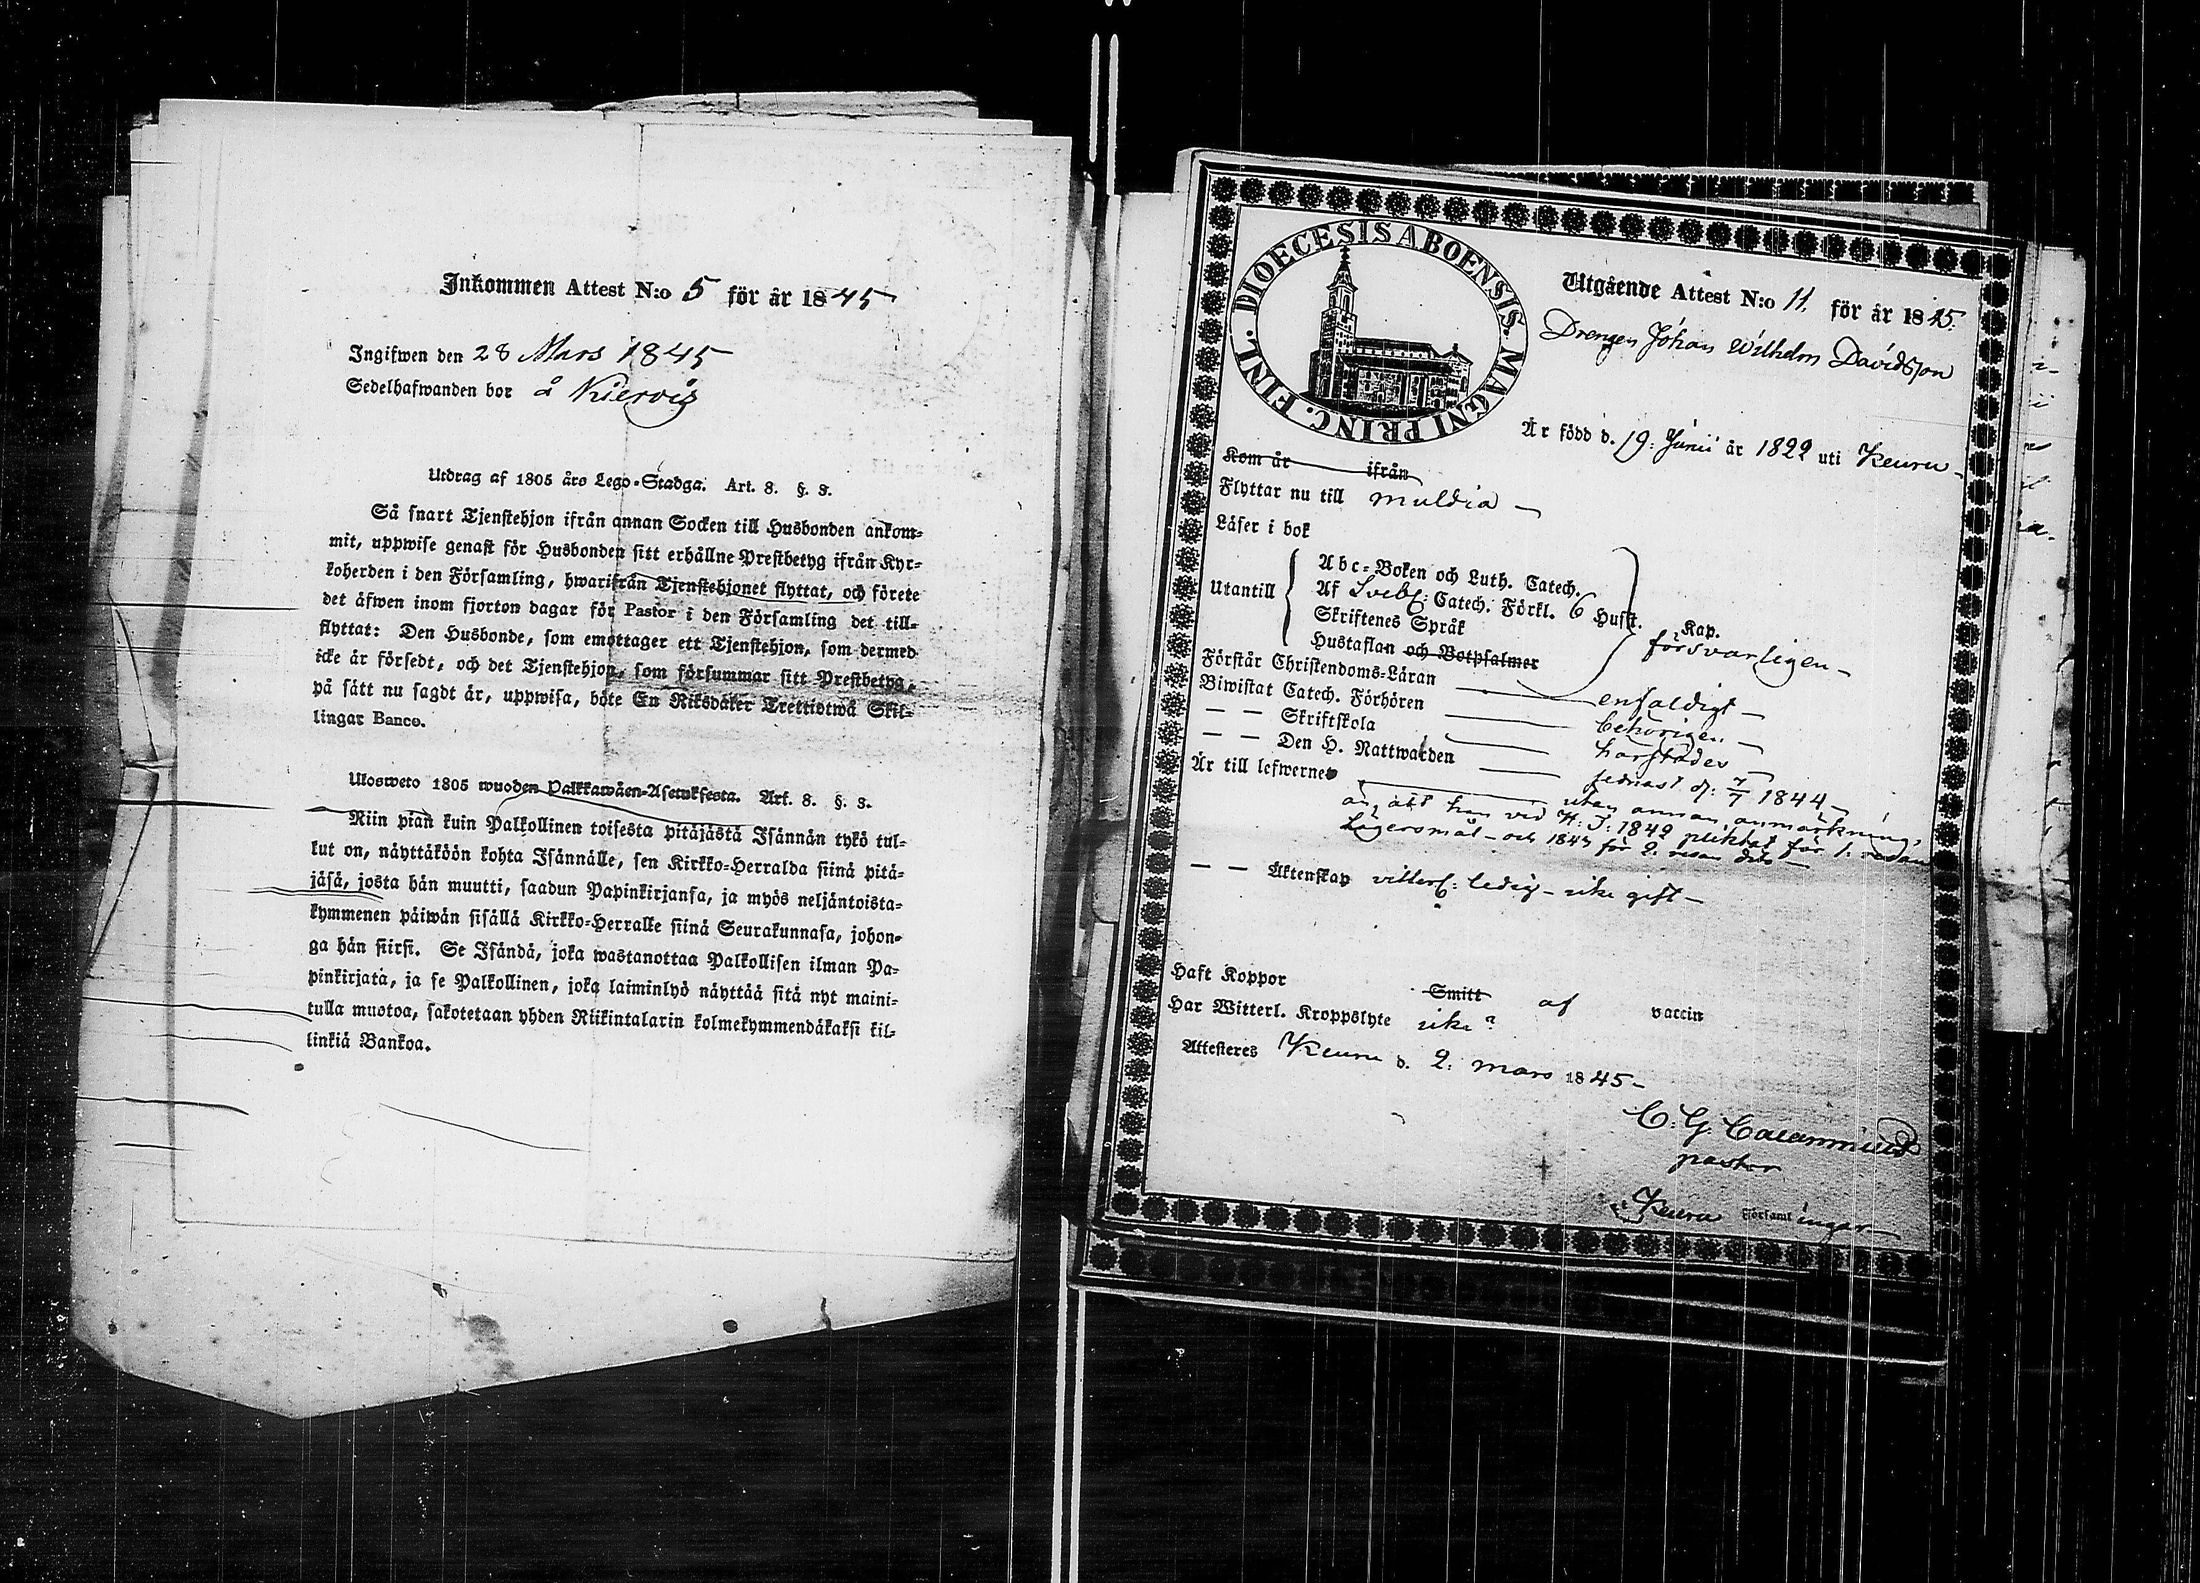 Inkommen Attest N:o 5 för år 1845
Ingifwen den 28 Mars 1845
Sedelhafwanden bor å
Utdrag af 1805 års Lego-Stadga. Art. 8. §. 3.
Så snart Tjenstehjon ifrån annan Socken till Husbonden ankom-
mit, uppwise genast för Husbonden sitt erhållne Prestbetyg ifrån Kyr-
koherden i den Församling, hwarifrån Tjenstehjonet flyttat, och förete
det äfwen inom fjorton dagar för Pastor i den Församling det till-
flyttat: Den Husbonde, som emottager ett Tjenstehjon, som dermed
icke är försedt, och det Tjenstehjon, som försummar sitt Prestbetyg,
på sätt nu sagdt är, uppwisa, böte En Riksdaler Trettiotwå Skil-
lingar Banco.
Ulosweto 1805 wuoden Palkkawäen-Asetuksesta. Art. 8. §. 3.
Niin pian kuin Palkollinen toisesta pitäjästä Isännän tykö tul-
lut on, näyttäköön kohta Isännälle, sen Kirkko-Herralda siinä pitä-
jäsä, josta hän muutti, saadun Papinkirjansa, ja myös neljäntoista-
kymmenen päiwän sisällä Kirkko-Herralle siinä Seurakunnasa, johon-
ga hän siirsi. Se Isändä, joka wastanottaa Palkollisen ilman Pa-
pinkirjata, ja se Palkollinen, joka laiminlyö näyttää sitä nyt maini-
tulla muotoa, sakotetaan yhden Riikintalarin kolmekymmendäkaksi kil-
linkiä Bankoa.
DIOECESIS ABOENSIS. MAGNI PRINC. FINL.
Utgående Attest N:o 11. för år 1845.
Drengen Johan Wilhelm Davidsson
Är född d. 19: Junii år 1822 uti Keuru
Kom år ifrån
Flyttar nu till Muldia
Läser i bok
Utantill
Abc-Boken och Luth. Catech.
Af Sveb: Catech. Förkl. 6 Hufst. Kap.
Skriftenes Språk
Hustaflan och Botpsalmer
försvarligen
Förstår Christendoms-Läran enfaldigt
Biwistat Catech. Förhören behörigen
— — Skriftskola
— — Den H. Nattwarden sednast d: 7/7 1844
Är till lefwernet utan annan anmärkning,
än, att han vid 1842 pliktat för 1: resan
Lägersmål - och 1843 för 2: resan
— — Äktenskap vitterl: ledig - gift
Haft Koppor Smitt af vaccin
Har Witterl. Kroppslyte
Attesteres Keuru d. 2: Mars 1845
C. G.
pastor
Keuru Församlingar